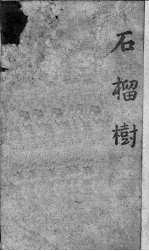 石榴樹